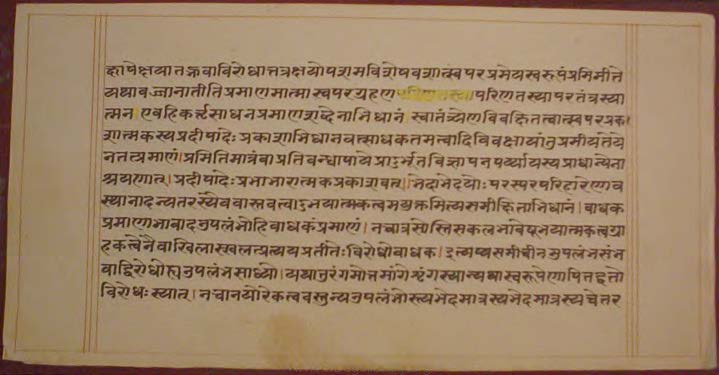 ज्ञापेक्षया तद्भवाविरोधात्तत्रक्षयोपशमविशेषवशात्स्वपरप्रमेयस्वरूपं प्रमिमीते
यथावज्जानातीति प्रमाणमात्मा स्वपरग्रहणपरिणतस्यापरिणतस्यापरतंत्रस्या
त्मन एव हि कर्तृसाधनप्रमाणशब्देनाभिधानं। स्वातंत्र्येण विवक्षितत्वात्स्वपरप्रका
शात्मकस्य प्रदीपादेः प्रकाशाभिधानवत्साधकतमत्वादिविवक्षायां तु प्रमीयते ये
न तत्प्रमाणं। प्रमितिमात्रं वा प्रतिबन्धापाये प्रादुर्भूतविज्ञापनपर्य्यायस्य प्राधान्येना
श्रयणात्। प्रदीपादेः प्रभाभारात्मकप्रकाशवत्। भेदाभेदयोः परस्परपरिहारेणाव
स्थानादन्यतरस्यैव वास्तवत्वादुभयात्मकत्वमयुक्तमित्यसमीक्षिताभिधानं। बाधक
प्रमाणाभावादनुपलंभो हि बाधकं प्रमाणं। न चात्र सोस्ति सकलभावेषूभयात्मकत्वग्रा
हकत्वेनैवाखिलास्खलत्प्रत्ययप्रतीतेः विरोधो बाधक। इत्यप्यसमीचीनमुपलंभसंभ
वाद्विरोधो ह्यनुपलंभसाध्यो। यथा तुरंगमोत्तमांगे शृंगस्यान्यथा स्वरूपेणापि तद्वतो
विरोधः स्यात्। न चानयोरेकत्र वस्तुन्यनुपलंभोस्त्यभेदमात्रस्य भेदमात्रस्य चेतर